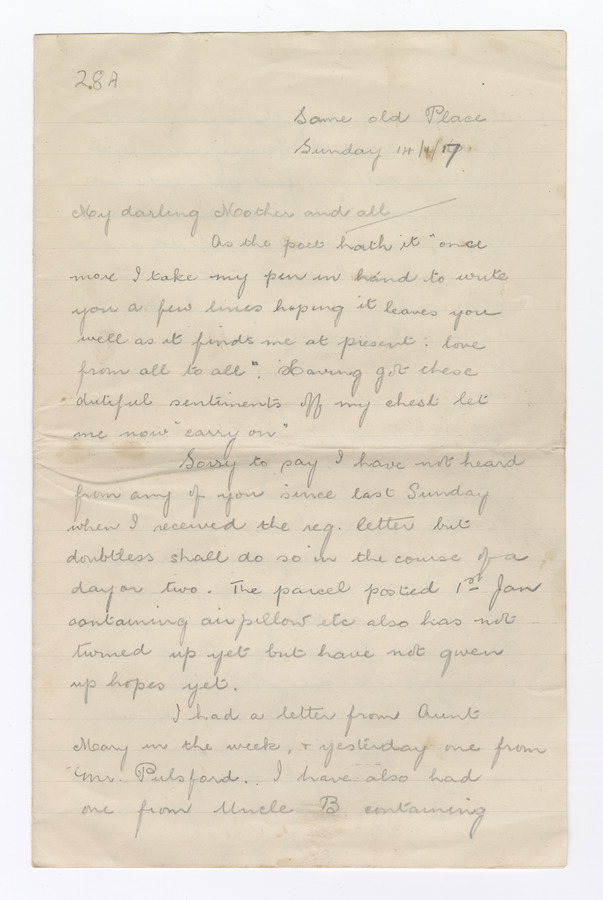 28A
Same old Place
Sunday 14/1/17.
My darling Mother and all
As the poet hath it "once
more I take my pen in hand to write
you a few lines hoping it leaves you
well as it finds me at present: love
from all to all". Having got these
"dutiful sentiments off my chest let
me now "carry on"
Sorry to say I have not heard
from any of you since last Sunday
when I received the reg. letter but
doubtless shall do so in the course of a
day or two. The parcel posted 1st Jan
containing air pillow etc also has not
turned up yet but have not given
up hopes yet.
I had a letter from Aunt
Mary in the week, & yesterday one from
Mr. Pulsford. I have also had
one from Uncle B containing